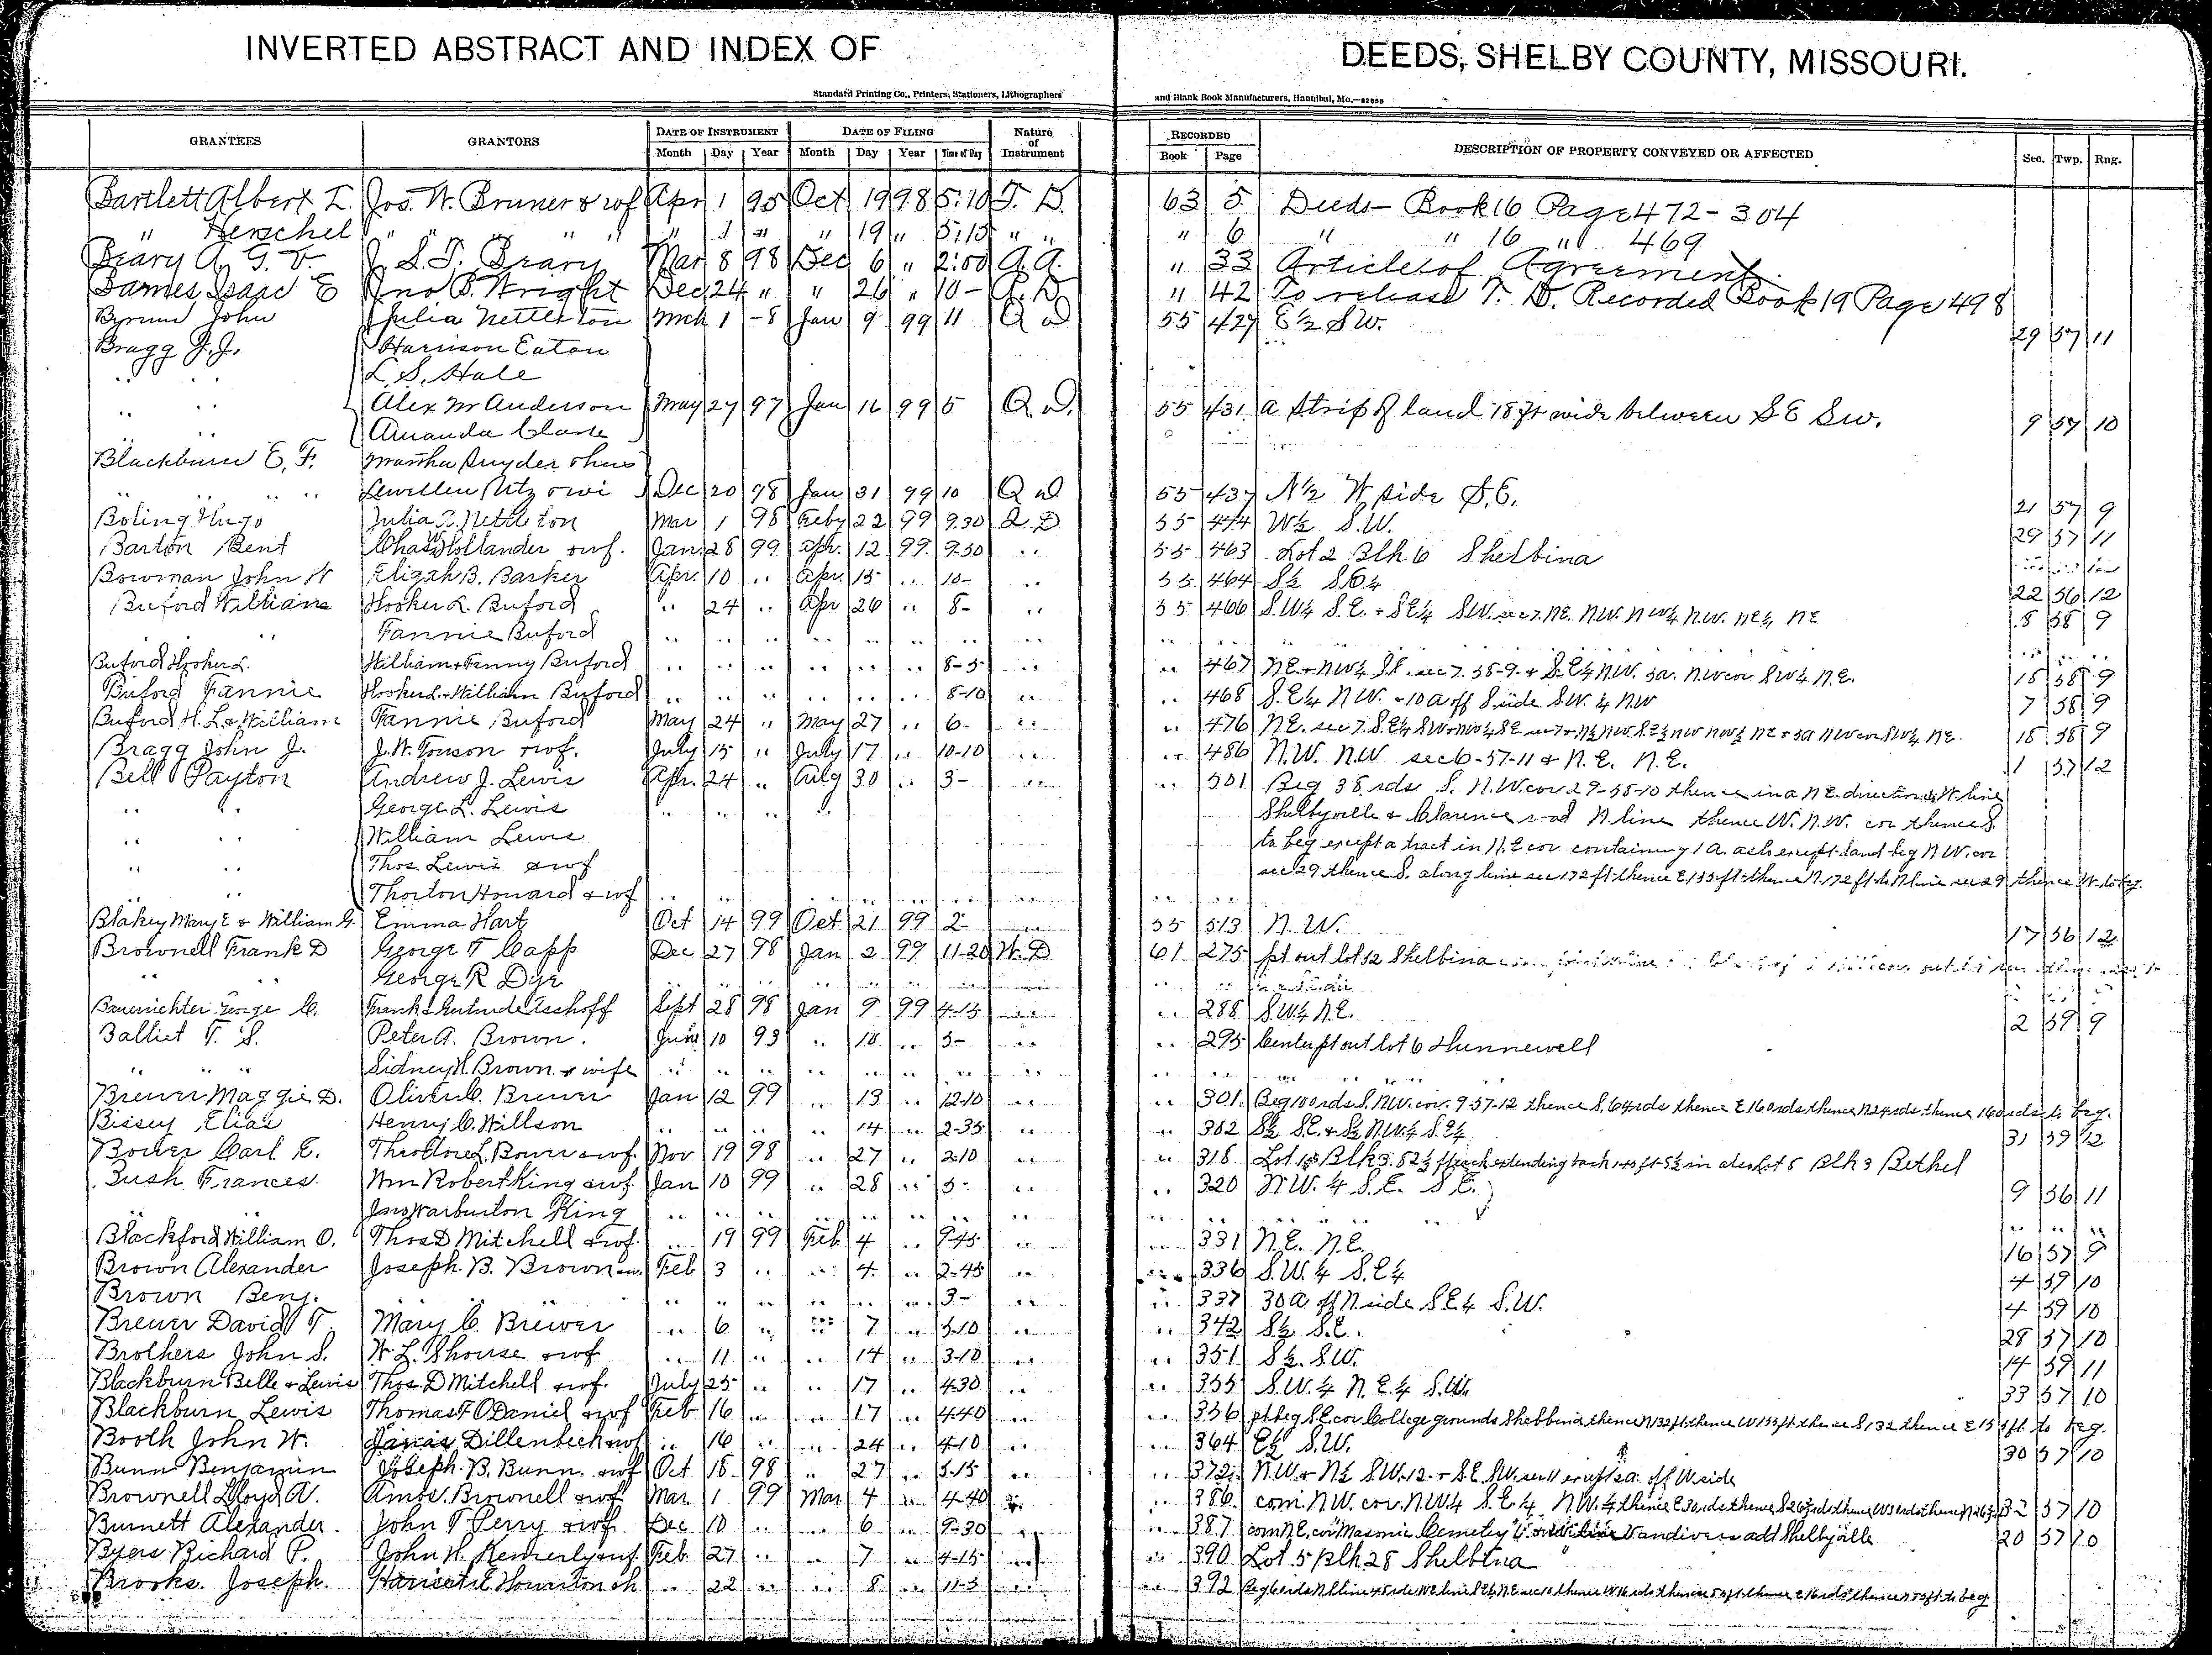 INVERTED ABSTRACT AND INDEX OF DEEDS, SHELBY COUNTY, MISSOURI.
Standard Printing Co., Printers, Stationers, Lithographers and Blank Book Manufacturers, Hannibal, Mo.
GRANTEES GRANTORS DATE OF INSTRUMENT DATE OF FILING Nature of Instrument RECORDED DESCRIPTION OF PROPERTY CONVEYED OR AFFECTED Sec. Twp. Rng.
Month Day Year Month Day Year Time of Day Book Page
Bartlett Albert L. Jos. W. Bruner & wf Apr 1 95 Oct 19 98 5:10 T. D. 63 5 Deeds - Book 16 Page 472 - 304
" Herschel " " " " " " 1 " " 19 " 5:15 " " " 6 " " 16 " 469
Brary A. G. J. S. T. Brary Mar 8 98 Dec 6 " 2:00 A. A. " 33 Articles of Agreement
James Isaac E Jno P. Wright Dec 24 " " 26 " 10 - " 42 To release T. D. Recorded Book 19 Page 498
Byrum John Julia Nettleton Mch 1 -8 Jan 9 99 11 Q D 55 427 E½ SW. 29 57 11
Bragg J. J. Harrison Eaton
.. .. L. S. Hale
.. .. Alex M Anderson May 27 97 Jan 16 99 5 Q D. 55 431 a strip of land 18 ft wide between SE SW. 9 57 10
.. Amanda Clark
Blackburn E. F. Martha Snyder & hus
.. .. .. Lewellen Utz & wi Dec 20 98 Jan 31 99 10 Q D 55 437 N½ W side S.E. 21 57 9
Boling Hugo Julia A. Nettleton Mar 1 98 Feby 22 99 9.30 Q. D 55 444 W½ S.W. 29 57 11
Barton Bent Chas W Hollander & wf. Jan 28 99 Apr. 12 99 9.50 .. 55 463 Lot 2 Blk. 6 Shelbina
Bowman John W Elijah B. Barker Apr. 10 .. Apr. 15 .. 10- .. 55 464 S½ SE¼ 22 56 12
Buford William Hooker L. Buford .. 24 .. Apr 26 .. 8- .. 55 466 S.W¼ S.E. + SE¼ SW. sec 7. NE. N.W. NW¼ N.W. NE¼ NE 8 58 9
.. Fannie Buford .. .. .. .. .. .. .. ..
Buford Hooker L. William & Fanny Buford .. .. .. .. .. .. 8-5 .. .. 467 NE. + NW¼ SE. sec 7. 58-9. + S.E¼ NW. 5a. NW cor SW¼ N.E. 18 58 9
Buford Fannie Hooker L. & William Buford .. .. .. .. .. .. 8-10 .. .. 468 S.E¼ N.W. + 10 a off S side SW. ¼ NW 7 58 9
Buford H. L. & William Fannie Buford May 24 .. May 27 .. 6- .. .. 476 18 58 9
Bragg John J. J. W. Tonson & wf. July 15 .. July 17 .. 10-10 .. .. 486 N.W. N.W sec 6-57-11 & N.E. N.E. 1 57 12
Bell Payton Andrew J. Lewis Apr. 24 .. Aug 30 .. 3- .. .. 501 Beg 38 rds S. N.W. cor 29-58-10 thence in a NE. direction W. line
.. .. George L. Lewis .. .. .. .. .. Shelbyville & Clarence road N line thence W. N.W. cor thence S.
.. .. William Lewis to beg except a tract in N.E cor containing 1 A. also except land beg N.W. cor
.. .. Thos. Lewis & wf sec 29 thence S. along line sec 172 ft thence E 135 ft thence N. 172 ft to N line sec 29 thence W. to beg.
.. .. Thorton Howard & wf
Blakey Mary E & William G. Emma Hart Oct 14 99 Oct 21 99 2- 55 513 N.W. 17 56 12
Brownell Frank D George T Capp Dec 27 98 Jan 2 99 11-20 W. D 61 275 pt out lot 52 Shelbina
.. George R Dye
Bauerrichter George C. Frank & Gertrude Isshoff Sept 28 98 Jan 9 99 4-15 .. .. 288 S.W¼ N.E. 2 59 9
Balliet T. S. Peter A. Brown. June 10 93 .. 10. .. 3- .. .. 295 Center pt out lot 6 Hunnewell
.. .. Sidney H. Brown & wife
Brewer Maggie D. Oliver C. Brewer Jan 12 99 .. 13 .. 12-10 .. 301 Beg 10 rds S. NW. cor. 9-57-12 thence S. 64 rds thence E 160 rds thence N 24 rds thence 160 rds to beg.
Bissey Elias Henry C. Willson .. .. .. .. 14 .. 2-35 .. .. 302 S½ S.E. + S½ N.W.¼ S.E¼ 31 59 12
Bower Carl E. Theodore L. Bower & wf. Nov 19 98 .. 27 .. 2:10 .. .. 318 Blk 3 Bethel
Bush Frances. Wm Robert King & wf. Jan 10 99 .. 28 .. 3- .. .. 320 N.W. ¼ S.E. S.E. 9 56 11
.. Jno Warburton King
Blackford William O. Thos D Mitchell & wf. .. 19 99 Feb 4 .. 9-45 .. .. 331 N.E. N.E. 16 57 9
Brown Alexander Joseph B. Brown Feb 3 .. .. 4 .. 2-45 .. .. 336 S.W. ¼ S.E¼ 4 59 10
Brown Benj. .. .. .. .. .. .. .. 3- .. .. 337 30 A off N side S.E¼ S.W. 4 59 10
Brewer David T. Mary C. Brewer .. 6 .. .. 7 .. 3-10 .. .. 342 S½ S.E. 28 57 10
Brothers John S. W. L. Shouse & wf .. 11 .. .. 14 .. 3-10 .. .. 351 S½. S.W. 14 59 11
Blackburn Belle & Lewis Thos. D Mitchell & wf. July 25 .. .. 17 .. 4-30 .. .. 355 S.W. ¼ N.E.¼ S.W. 33 57 10
Blackburn Lewis Thomas F O'Daniel & wf Feb 16 .. .. 17 .. 4-40 .. .. 356 pt beg S.E. cor College grounds Shelbina thence N 132 ft thence W 155 ft thence S, 132 thence E 155 ft. to beg.
Booth John W. Dillenbeck & wf .. 16 .. 24 .. 4-10 .. .. 364 E½ S.W. 30 57 10
Bunn Benjamin Joseph. B. Bunn. & wf Oct 18. 98 .. 27 .. 3-15 .. .. 372 N.W. + N½ S.W. 12. + S.E. S.W. sec 11 except 2 a. off W side
Brownell Lloyd A. Amos. Brownell & wf Mar. 1 99 Mar 4 .. 4-40 .. 386 com. N.W. cor. N.W¼ S.E ¼ 32 57 10
Burnett Alexander. John T Perry & wf. Dec 10 .. .. 6 .. 9-30 .. .. 387 com N.E. cor Masonic Cemetery Vandivers add Shelbyville 20 57 10
Byers Richard P. John H. Kemerly & wf. Feb. 27 .. .. 7 .. 4-15 .. .. 390 Lot 5 Blk 28 Shelbina
Brooks. Joseph. .. 22 .. .. 8 .. 11-5 .. .. 392